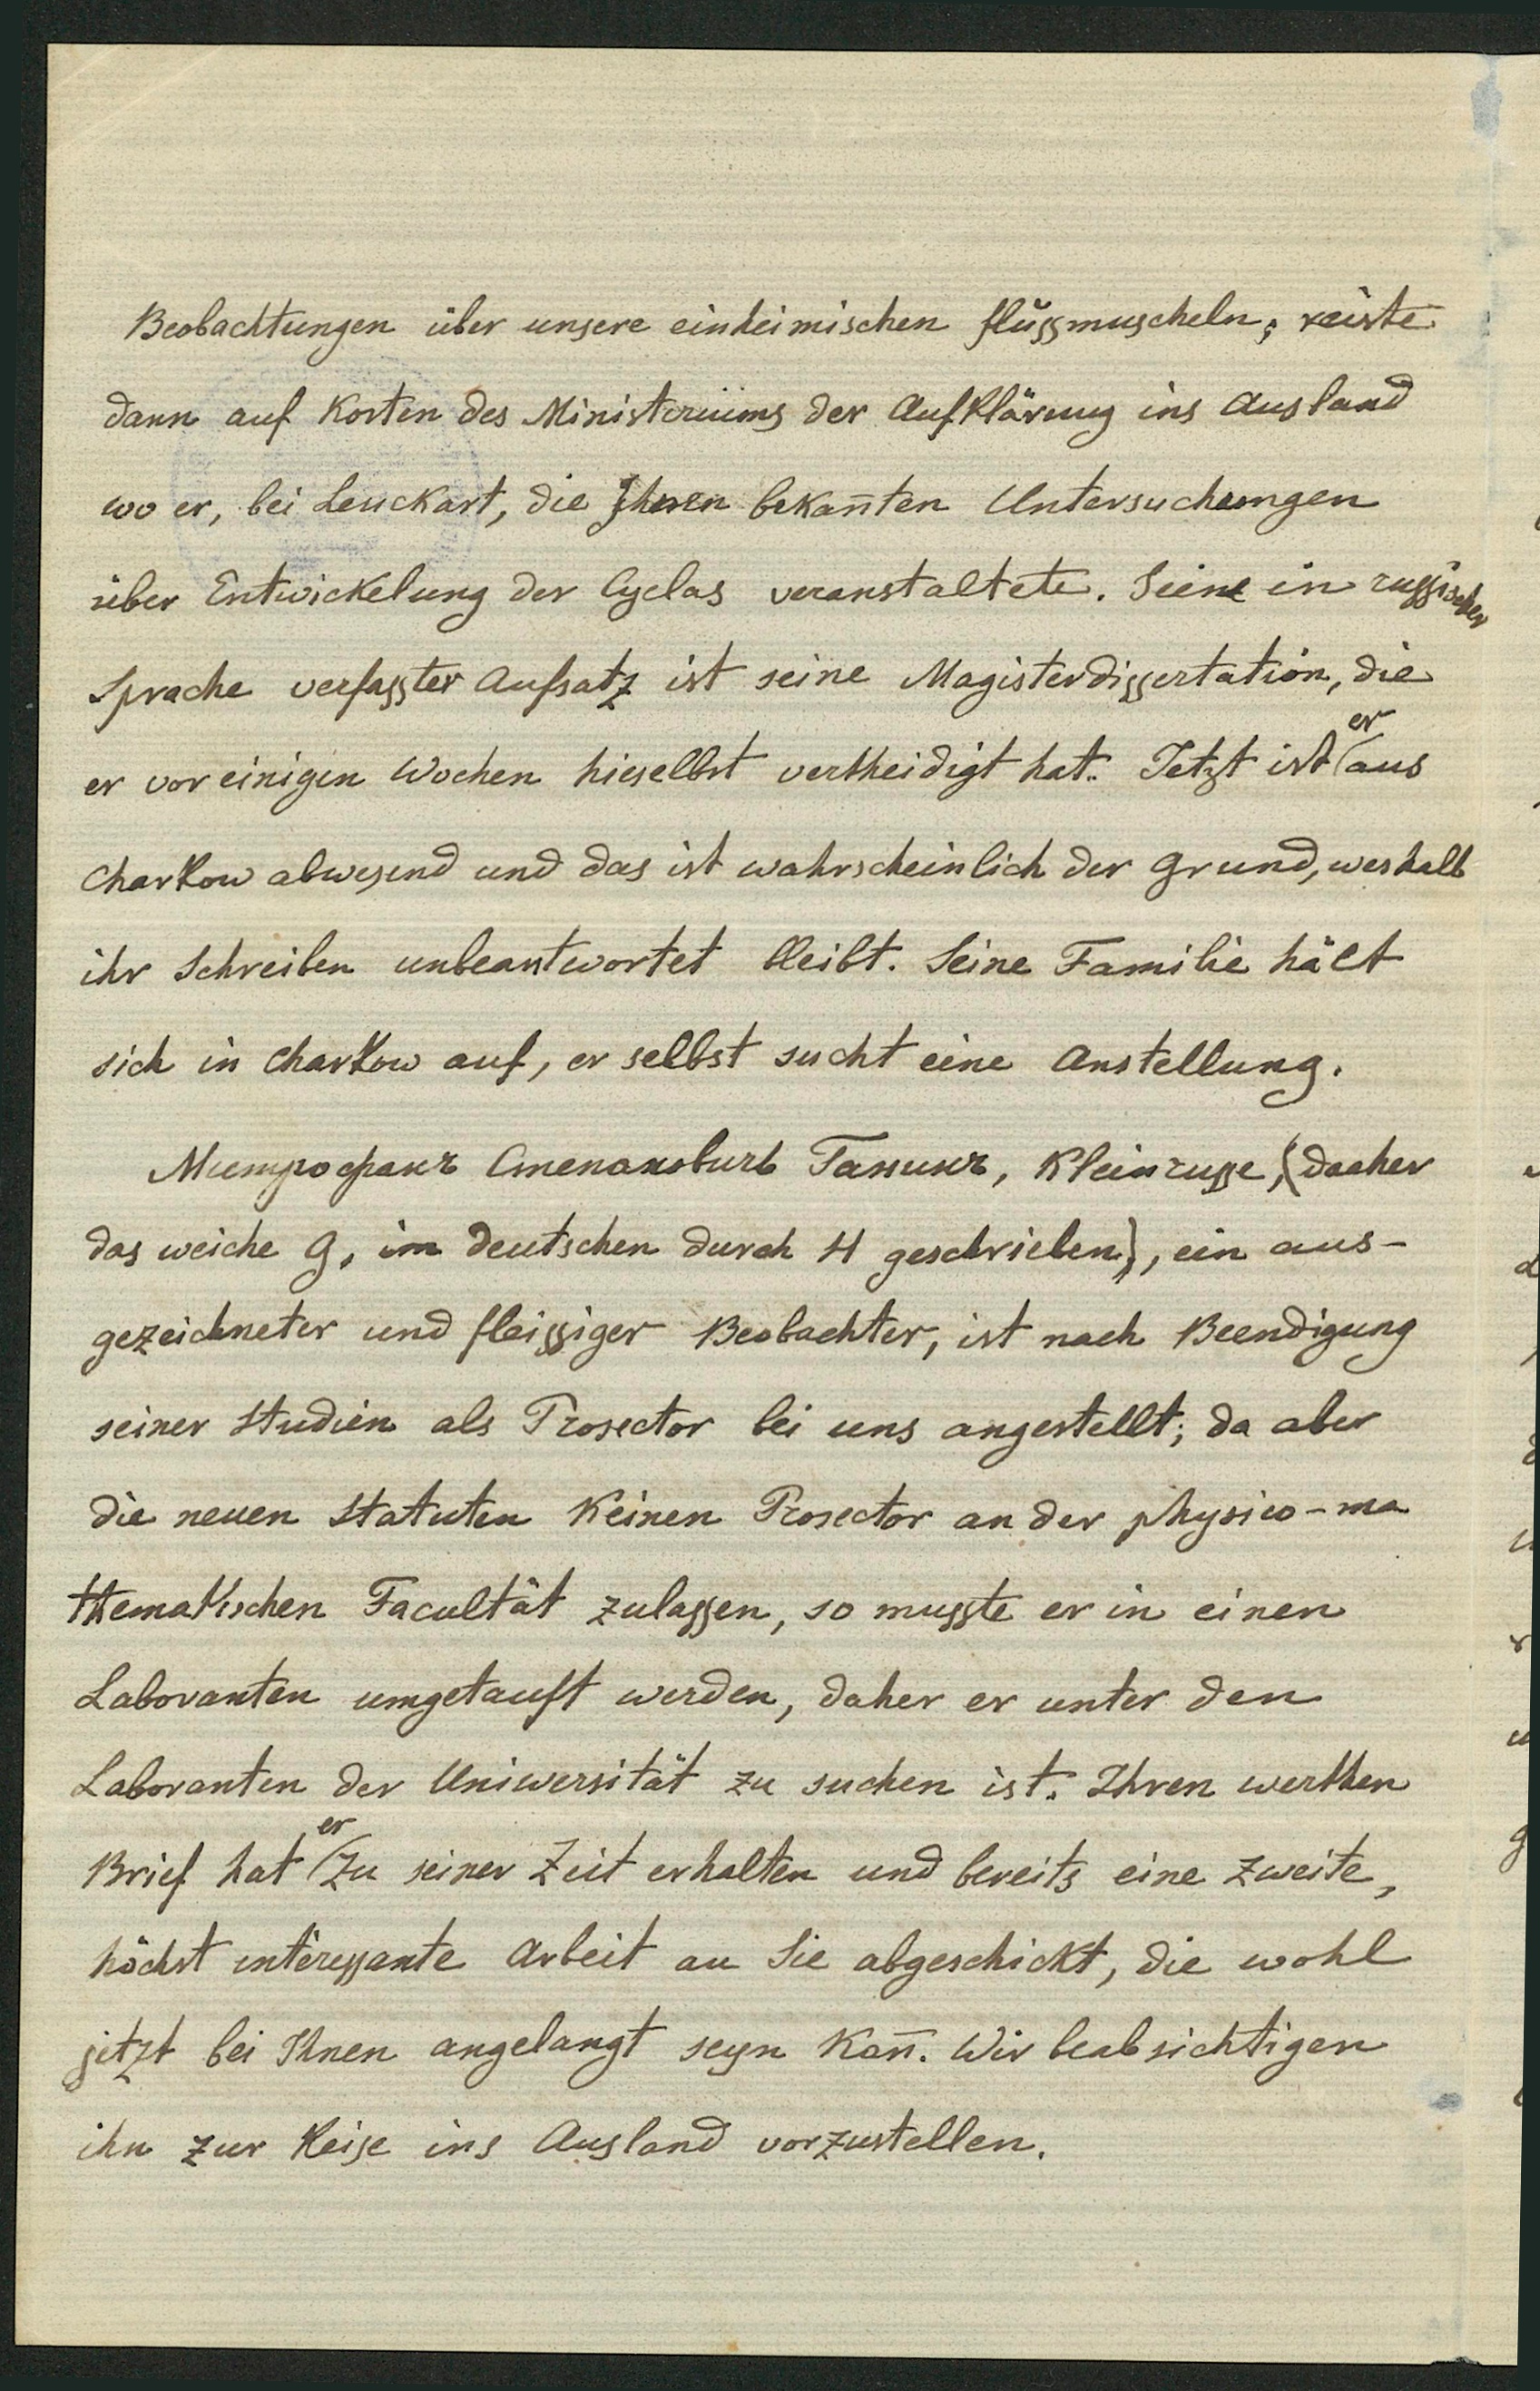 Beobachtungen über unsere einheimischen flussmuscheln; reiste
dann auf Kosten des Ministeriums der Aufklärung ins Ausland
wo er, bei Leuckart, die Ihnen bekan̄ten Untersuchungen
über Entwickelung der Cyclas veranstaltete. Seine in russischer
Sprache verfasster Aufsatz ist seine Magisterdissertation, die
er vor einigen Wochen hieselbst vertheidigt hat. Jetzt ist er aus
Charkow abwesend und das ist wahrscheinlich der Grund, weshalb
ihr Schreiben unbeantwortet bleibt. Seine Familie hält
sich in Charkow auf, er selbst sucht eine Anstellung.
Митрофанъ Степановичъ Ганинъ, Kleinrusse, (daher
das weiche G, im Deutschen durch H geschrieben), ein aus-
gezeichneter und fleissiger Beobachter, ist nach Beendigung
seiner Studien als Prosector bei uns angestellt; da aber
die neuen Statuten Keinen Prosector an der physico-ma
thematischen Facultät zulassen, so musste er in einen
Laboranten umgetauft werden, daher er unter den
Laboranten der Uniwersität zu suchen ist. Ihren werthen
Brief hat er zu seiner Zeit erhalten und bereits eine zweite,
höchst interessante Arbeit an Sie abgeschickt, die wohl
jetzt bei Ihnen angelangt seyn Kan̄. Wir beabsichtigen
ihn zur Reise ins Ausland vorzustellen.